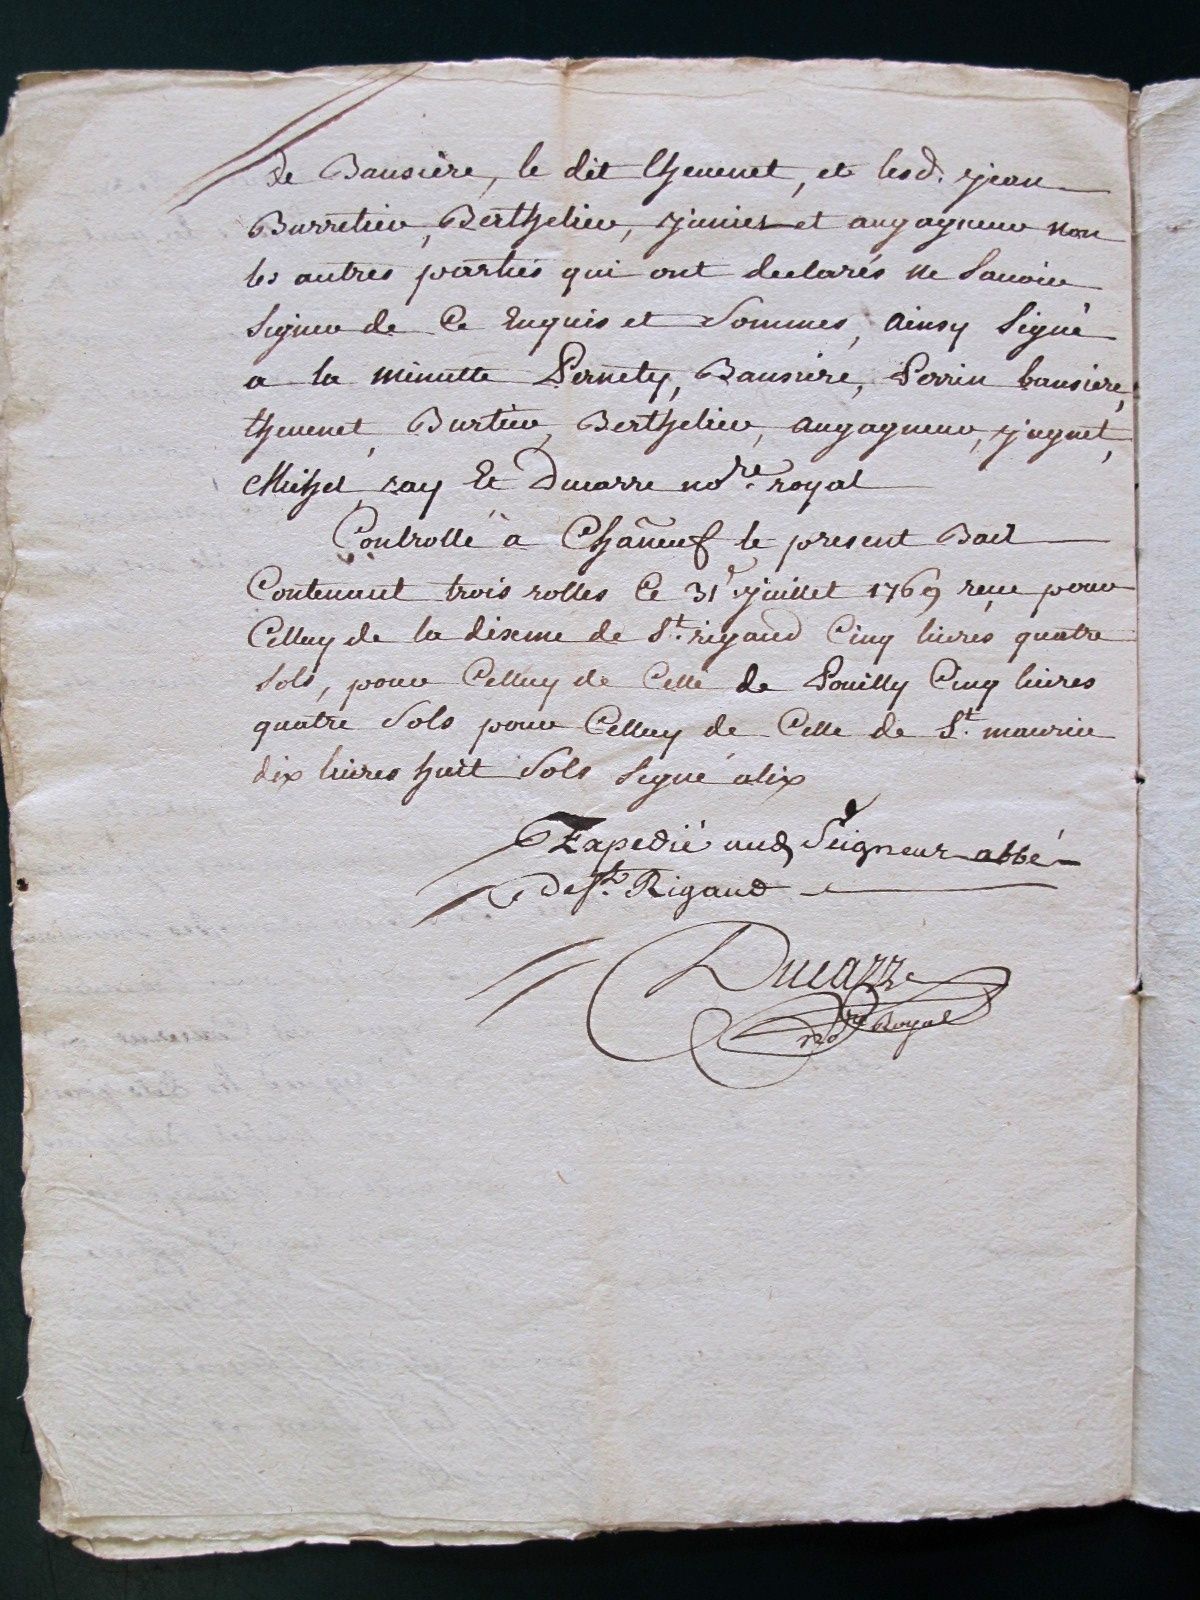 de Bausiere, le dit thevenet, et lesd. jean
Burretieu, Berthelieu, et augagneur non
les autres parties qui ont declarés ne Savoir
Signer de Ce Enquis et Sommes, ainsy Signé
a la minutte Pernety, Bausiere, Perrin bausiere,
thevenet, Burtieu, Berthelieu, augagneur,
Michel, ray Et Ducarre no.re royal
Controllé à Chãneuf le present Bail
Contenant trois rolles Ce 31e juillet 1769 reçu pour
Celluy de la dixme de St. rigaud Cinq livres quatre
Sols, pour Celluy de Celle de Pouilly Cinq livres
quatre Sols pour Celluy de Celle de St. maurice
dix livres huit Sols Signé alix
Expedié aud Seigneur abbé
de St. Rigaud
Ducarre
nore Royal